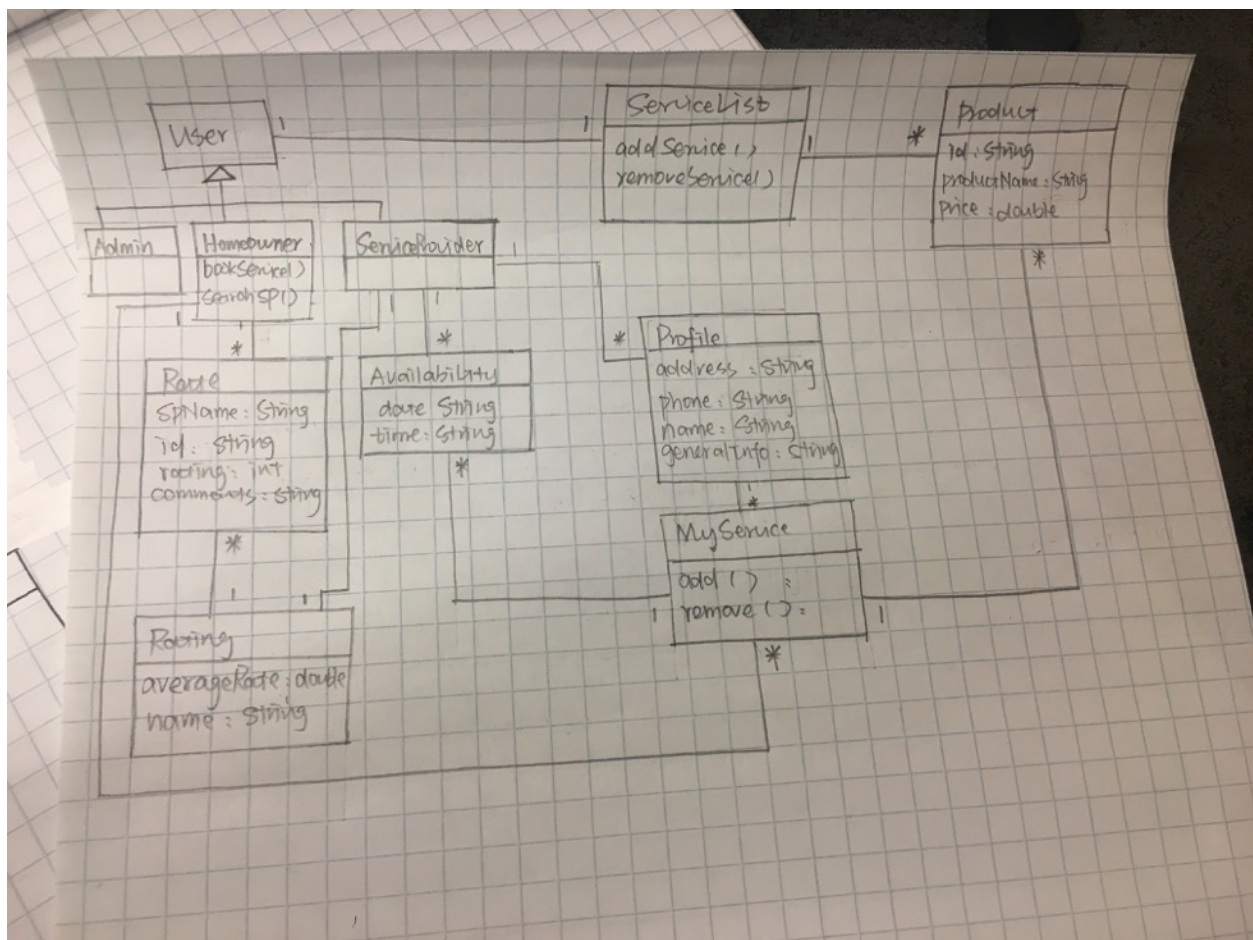 User
1
1
ServiceList
addService()
removeService()
1
*
Product
id : String
productName : String
price : double
*
Admin
Homeowner
bookService()
searchSP()
1
1
*
ServiceProvider
1
1
1
*
*
Rate
SpName : String
id : String
rating : int
comments : String
*
1
1
Availability
date String
time : String
*
Profile
address : String
phone : String
name : String
generalInfo : String
1
*
MyService
add ( ) :
remove ( ) :
1
1
*
Rating
averageRate : double
name : String